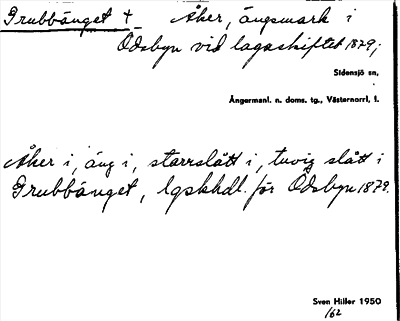 Grubbänget † Åker, ängsmark i
Ödsbyn vid lagaskiftet 1879;
Sidensjö sn,
Ångermanl. n. doms. tg., Västernorrl. l.
Åker i, äng i, starrslått i, tuvig slått i
Grubbänget, lgskhdl. för Ödsbyn 1879.
Sven Hiller 1950
/62